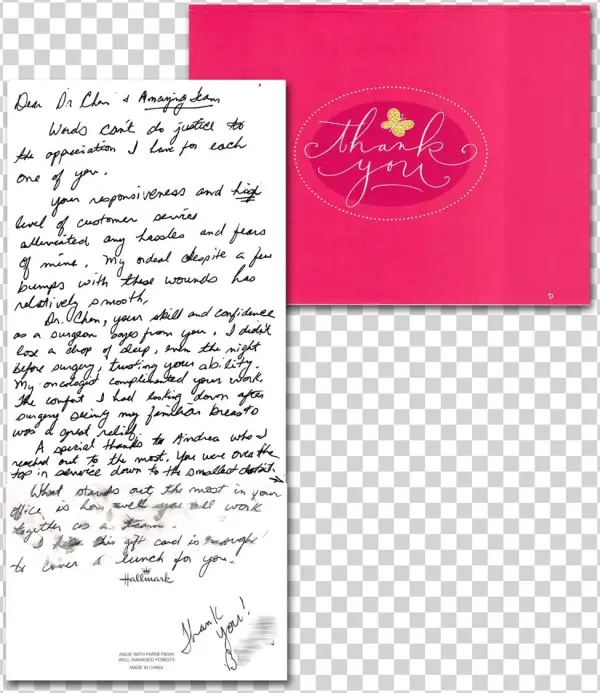 thank
you
Dear Dr Chen & Amazing team
Words can't do justice to
the appreciation I have for each
one of you.
Your responsiveness and high
level of customer service
alleviated any hassles and fears
of mine. My ordeal despite a few
bumps with these wounds has
relatively smooth.
Dr. Chen, your skill and confidence
as a surgeon from you. I didn't
lose a drop of sleep, even the night
before surgery, trusting your ability.
My oncologist complimented your work.
The comfort I had looking down after
surgery seeing my familiar breasts
was a great relief.
A special thanks to Andrea who I
reached out to the most. You were over the
top in service down to the smallest detail.
What stands out the most in your
office is how well you all work
together as a team.
I hope this gift card is enough
to cover a lunch for you.
Hallmark
Thank
You!
MADE WITH PAPER FROM
WELL-MANAGED FORESTS
MADE IN CHINA